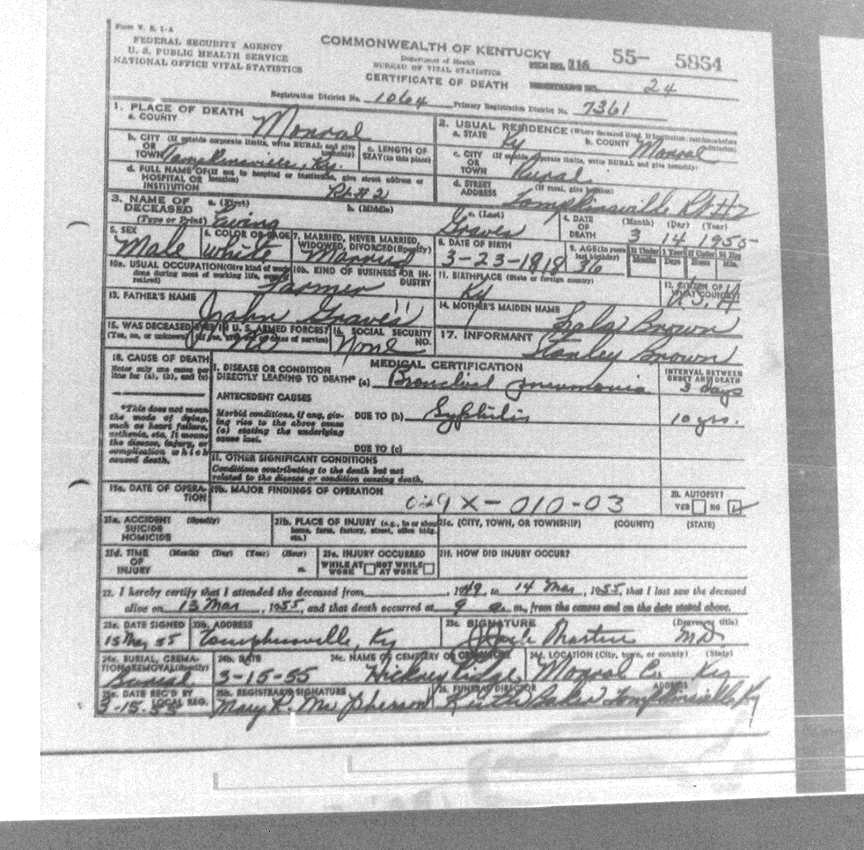 Form V. S. 1-A
FEDERAL SECURITY AGENCY
U. S. PUBLIC HEALTH SERVICE
NATIONAL OFFICE VITAL STATISTICS
COMMONWEALTH OF KENTUCKY
Department of Health
BUREAU OF VITAL STATISTICS
CERTIFICATE OF DEATH
116 55- 5854
24
Registration District No. 1064 Primary Registration District No. 7361
1. PLACE OF DEATH
a. COUNTY Monroe
2. USUAL RESIDENCE (Where deceased lived. If institution: residence before
a. STATE Ky b. COUNTY Monroe
b. CITY (If outside corporate limits, write RURAL and give
OR
TOWN Tompkinsville, Ky.
c. LENGTH OF
STAY (in this place)
c. CITY (If outside corporate limits, write RURAL and give township)
OR
TOWN Rural
d. FULL NAME OF (If not in hospital or institution, give street address or
HOSPITAL OR location)
INSTITUTION Rt # 2
d. STREET (If rural, give location)
ADDRESS Tompkinsville Rt #2
3. NAME OF
DECEASED
(Type or Print)
a. (First) Ewing
b. (Middle)
c. (Last) Graves
4. DATE
OF
DEATH
(Month) (Day) (Year)
3 14 1955
5. SEX
Male
6. COLOR OR RACE
white
7. MARRIED, NEVER MARRIED,
WIDOWED, DIVORCED (Specify)
Married
8. DATE OF BIRTH
3-23-1918
9. AGE (In years
last birthday)
36
10a. USUAL OCCUPATION (Give kind of work
done during most of working life, even if
retired)
Farmer
10b. KIND OF BUSINESS OR IN-
DUSTRY
11. BIRTHPLACE (State or foreign country)
Ky
12. CITIZEN OF
WHAT COUNTRY?
U.S.A
13. FATHER'S NAME
John Graves
14. MOTHER'S MAIDEN NAME
Brown
15. WAS DECEASED EVER IN U. S. ARMED FORCES?
(Yes, no, or unknown)
16. SOCIAL SECURITY
NO.
None
17. INFORMANT
Stanley Brown
18. CAUSE OF DEATH
Enter only one cause per
line for (a), (b), and (c)
MEDICAL CERTIFICATION
INTERVAL BETWEEN
ONSET AND DEATH
I. DISEASE OR CONDITION
DIRECTLY LEADING TO DEATH* (a) Bronchial pneumonia 3 days
*This does not mean
the mode of dying,
such as heart failure,
asthenia, etc. It means
the disease, injury, or
complication which
caused death.
ANTECEDENT CAUSES
Morbid conditions, if any, giv-
ing rise to the above cause
(a) stating the underlying
cause last.
DUE TO (b) Syphilis 10 yrs.
DUE TO (c)
II. OTHER SIGNIFICANT CONDITIONS
Conditions contributing to the death but not
related to the disease or condition causing death.
19a. DATE OF OPERA-
TION
19b. MAJOR FINDINGS OF OPERATION
029X-010-03
20. AUTOPSY?
YES NO
21a. ACCIDENT (Specify)
SUICIDE
HOMICIDE
21b. PLACE OF INJURY (e.g., in or about
home, farm, factory, street, office bldg.
etc.)
21c. (CITY, TOWN, OR TOWNSHIP) (COUNTY) (STATE)
21d. TIME (Month) (Day) (Year) (Hour)
OF
INJURY m.
21e. INJURY OCCURRED
WHILE AT WORK NOT WHILE AT WORK
21f. HOW DID INJURY OCCUR?
22. I hereby certify that I attended the deceased from , 1949, to 14 Mar, 1955, that I last saw the deceased
alive on 13 Mar, 1955, and that death occurred at 9 a. m., from the causes and on the date stated above.
23a. DATE SIGNED
15 Mar 55
23b. ADDRESS
Tompkinsville, Ky
23c. SIGNATURE (Degree or title)
Martin MD
24a. BURIAL, CREMA-
TION, REMOVAL (Specify)
Burial
24b. DATE
3-15-55
24c. NAME OF CEMETERY OR CREMATORY
Hickory Ridge
24d. LOCATION (City, town, or county) (State)
Monroe Co. Ky
25a. DATE REC'D BY
LOCAL REG.
3-15-55
25b. REGISTRAR'S SIGNATURE
Mary K. McPherson
26. FUNERAL DIRECTOR ADDRESS
Baker Tompkinsville Ky